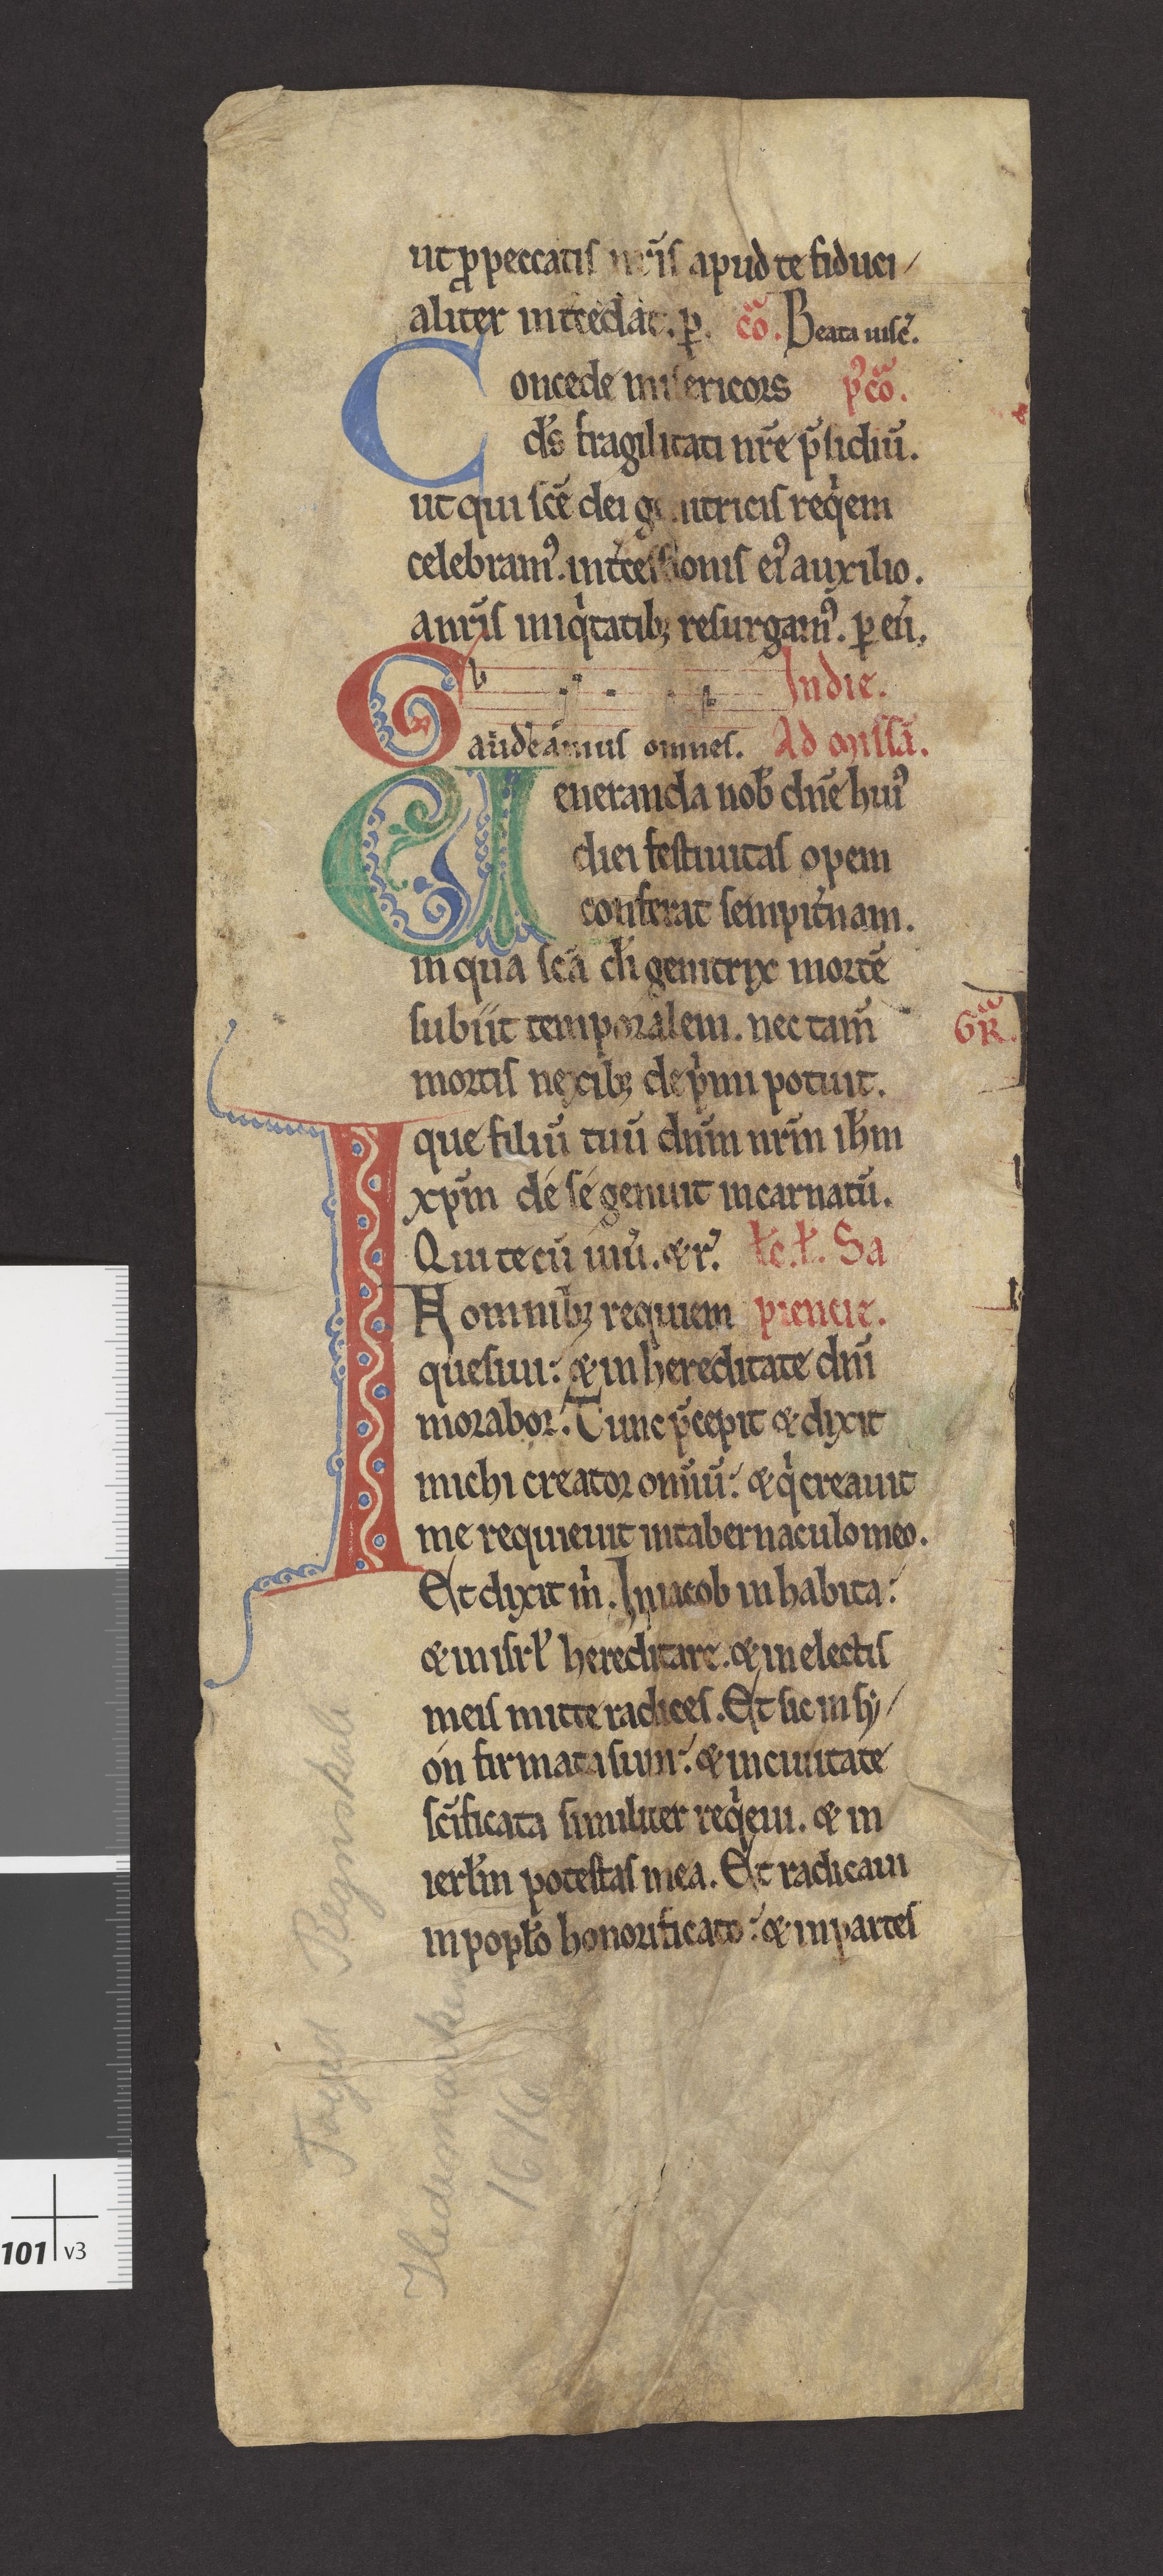 ut p̱ peccatis nr̄is apud te fiduci/
aliter int̄cedat. p̱. cō. Beata uisc̄.
Concede misericors p̱'cō.
ds̄ fragilitati nr̄e p̄sidiū.
ut qui sc̄e dei genitricis req̇em
celebram᷒. int̄cessionis ei᷒ auxilio.
a nr̄is iniq̇tatibꝫ resurgam᷒. p̱ eū.
Gaudeamus omnes. In die. Ad missā.
Ueneranda nob̄ dn̄e hui᷒
diei festiuitas opem
conferat sempit̄nam.
in qua sc̄a di̅ genitrix mortē
subiit temporalem. nec tam̄
mortis nexibꝫ dep̍mi potuit.
que filiū tuū dn̄m nr̄m ih̄m
xp̄m de se genuit incarnatū.
Qui tecū uiu̍. & r᷒. łc̄. ł. Sa
In omnibꝫ requiem piencie.
quesiui: & in hereditate dn̄i
morabor. Tunc p̄cepit & dixit
michi creator om̄iū: & q̍ creauit
me requieuit in tabernaculo meo.
Et dixit m̍. In iacob inhabita:
& in isrł hereditare. & in electis
meis mitte radices. Et sic in sy/
on firmata sum: & in ciuitate
sc̄ificata similiter req̍eui. & in
ierłm potestas mea. Et radicaui
in popło honorificato: & in partes
GR̄.
Foged Regnskab
Hedemarken
1616
101 v3